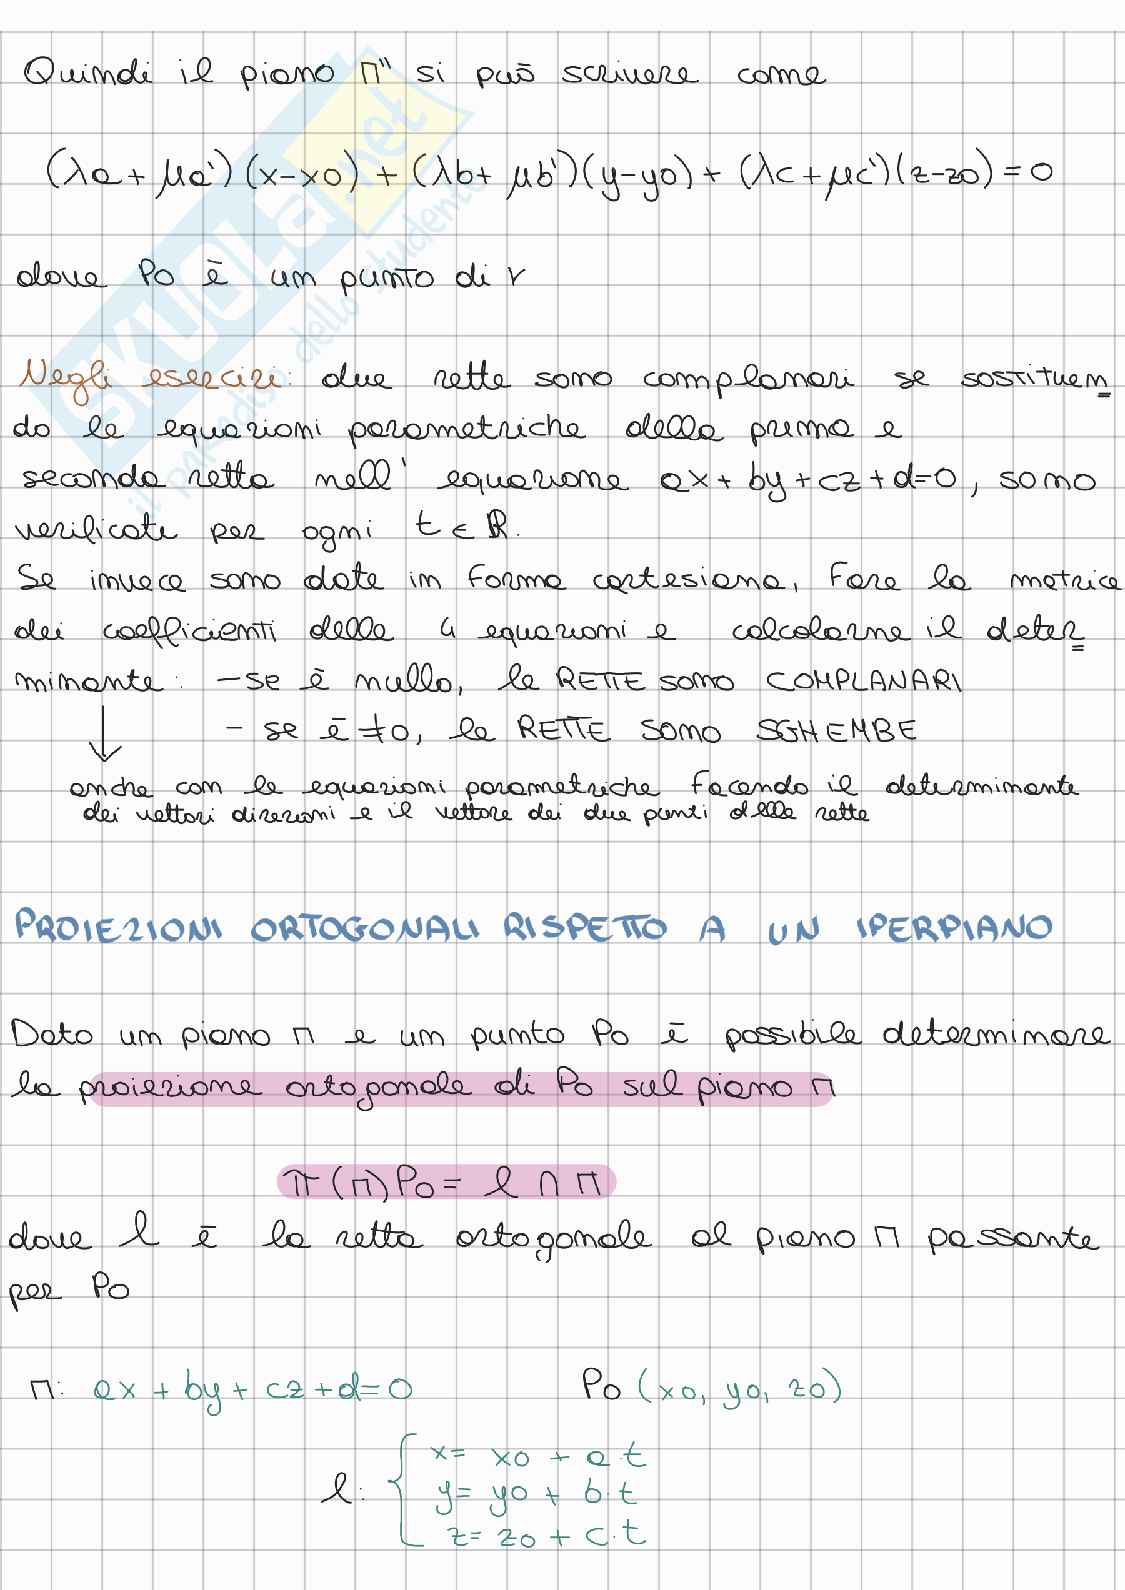 Quindi il piano π'' si può scrivere come
(λa + μa')(x-x0) + (λb + μb')(y-y0) + (λc + μc')(z-z0) = 0
dove P0 è un punto di r
Negli esercizi: due rette sono complanari se sostituen
do le equazioni parametriche della prima e
seconda retta nell' equazione ax + by + cz + d=0, sono
verificate per ogni t ∈ ℝ.
Se invece sono date in forma cartesiana, fare la matrice
dei coefficienti delle 4 equazioni e calcolarne il deter
minante: - se è nullo, le RETTE SONO COMPLANARI
- se è ≠0, le RETTE SONO SGHEMBE
anche con le equazioni parametriche facendo il determinante
dei vettori direzioni e il vettore dei due punti delle rette
PROIEZIONI ORTOGONALI RISPETTO A UN IPERPIANO
Dato un piano π e un punto P0 è possibile determinare
la proiezione ortogonale di P0 sul piano π
π(π)P0 = l ∩ π
dove l è la retta ortogonale al piano π passante
per P0
π: ax + by + cz + d=0 P0 (x0, y0, z0)
l: { x= x0 + a·t
y= y0 + b·t
z= z0 + c·t
SKUOLA.net
il paradiso dello studente